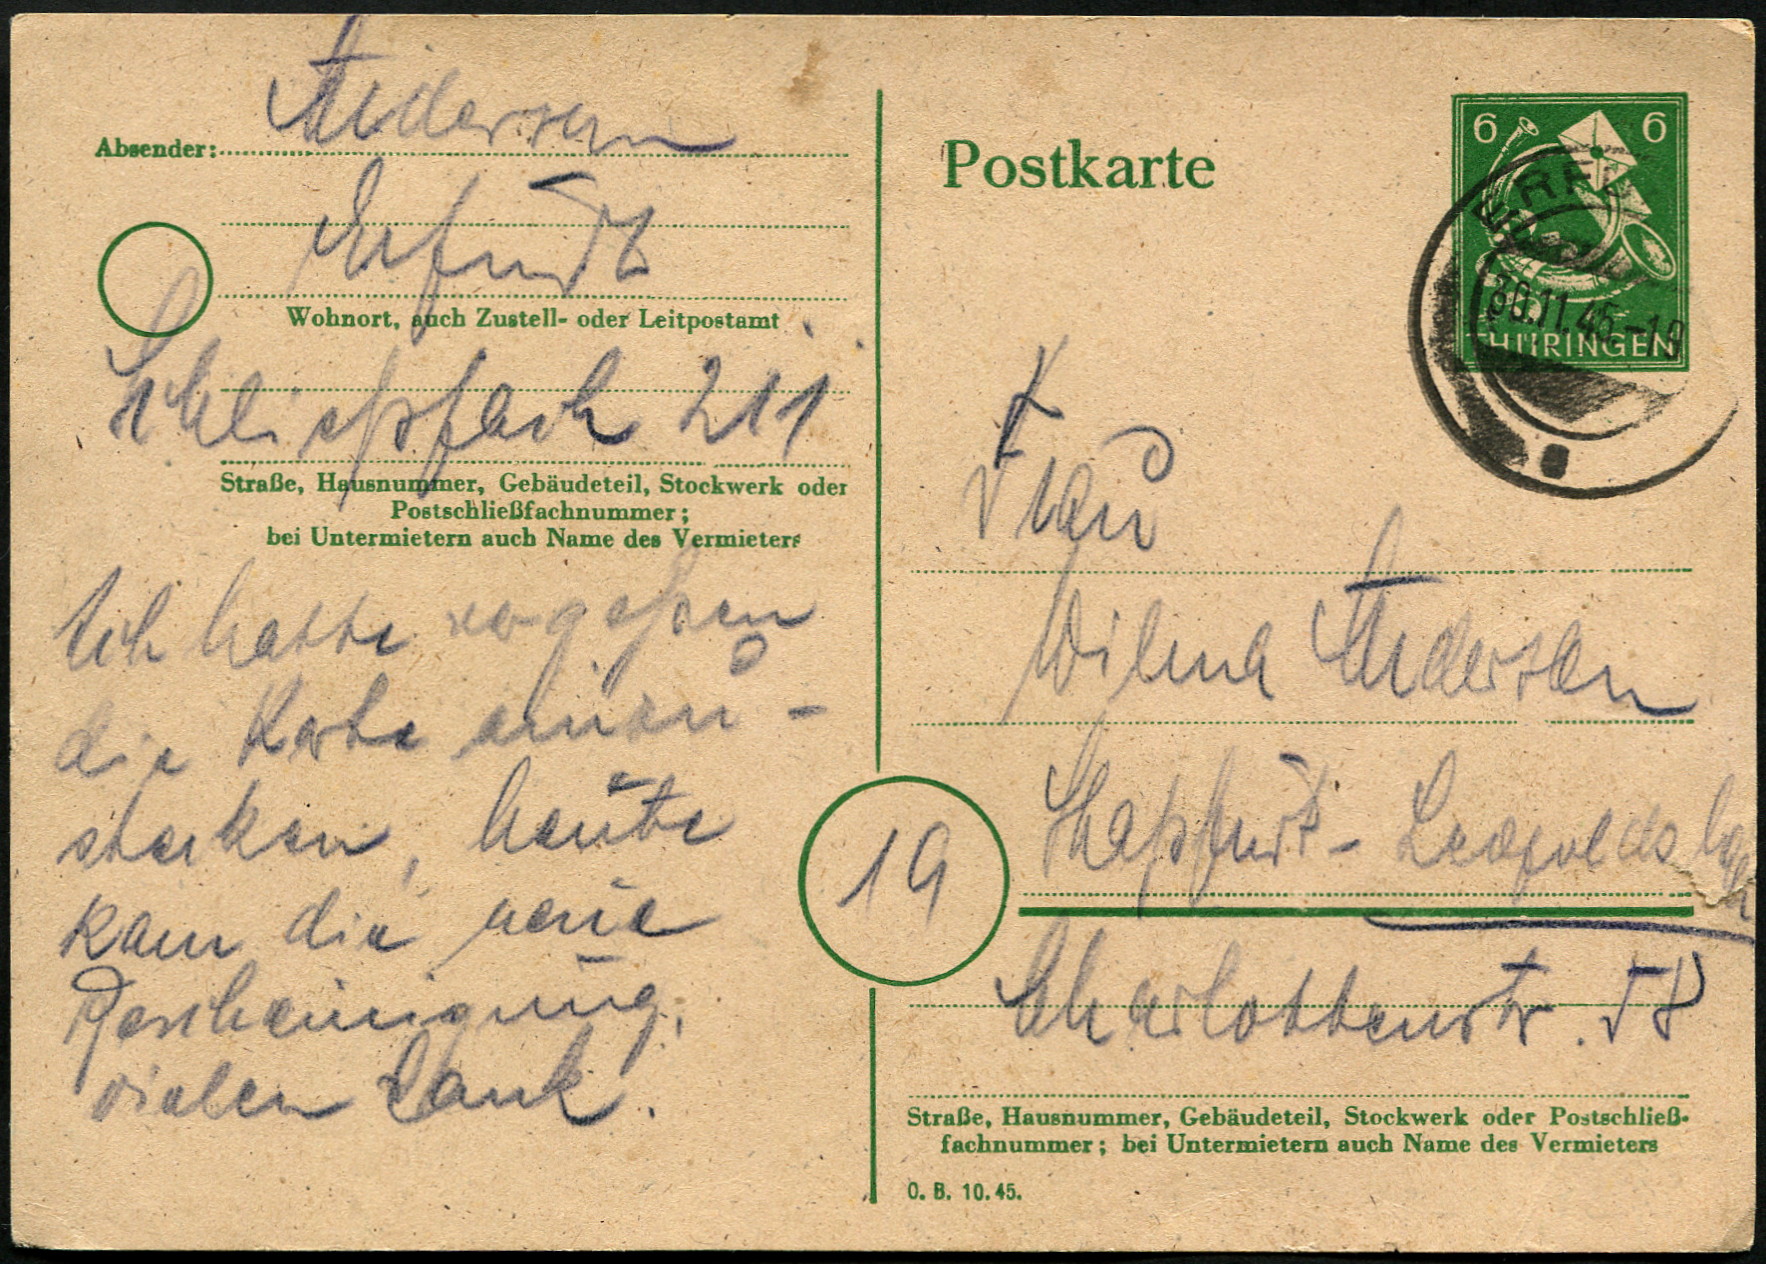 Absender: Andersen
Erfurt
Wohnort, auch Zustell- oder Leitpostamt
Schließfach 211
Straße, Hausnummer, Gebäudeteil, Stockwerk oder
Postschließfachnummer;
bei Untermietern auch Name des Vermieters
Ich hatte vergessen
die Karte einzu-
stecken, heute
kam die neue
Bescheinigung.
vielen Dank.
Postkarte
6 6
THÜRINGEN
ERFU
30.11.45.-19
Frau
Wilma Andersen
Staßfurt-Leopoldshall
19
Charlottenstr.
Straße, Hausnummer, Gebäudeteil, Stockwerk oder Postschließ-
fachnummer; bei Untermietern auch Name des Vermieters
O. B. 10. 45.